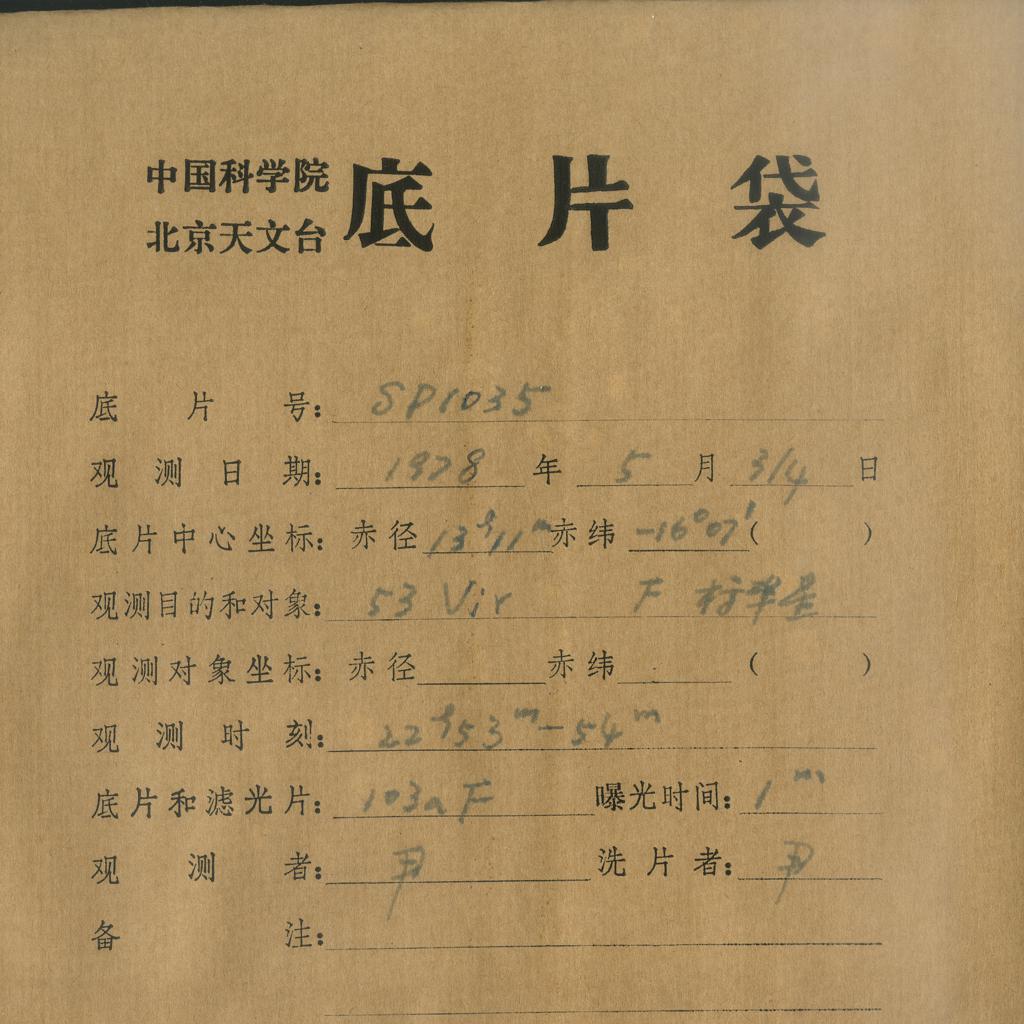 中国科学院
北京天文台
底片袋
底片号: SP1035
观测日期: 1978 年 5 月 3/4 日
底片中心坐标: 赤径 13ʰ11ᵐ 赤纬 -16°07′ ( )
观测目的和对象: 53 Vir F 标准星
观测对象坐标: 赤径 赤纬 ( )
观测时刻: 22ʰ53ᵐ-54ᵐ
底片和滤光片: 103aF 曝光时间: 1ᵐ
观测者: 尹 洗片者: 尹
备注: